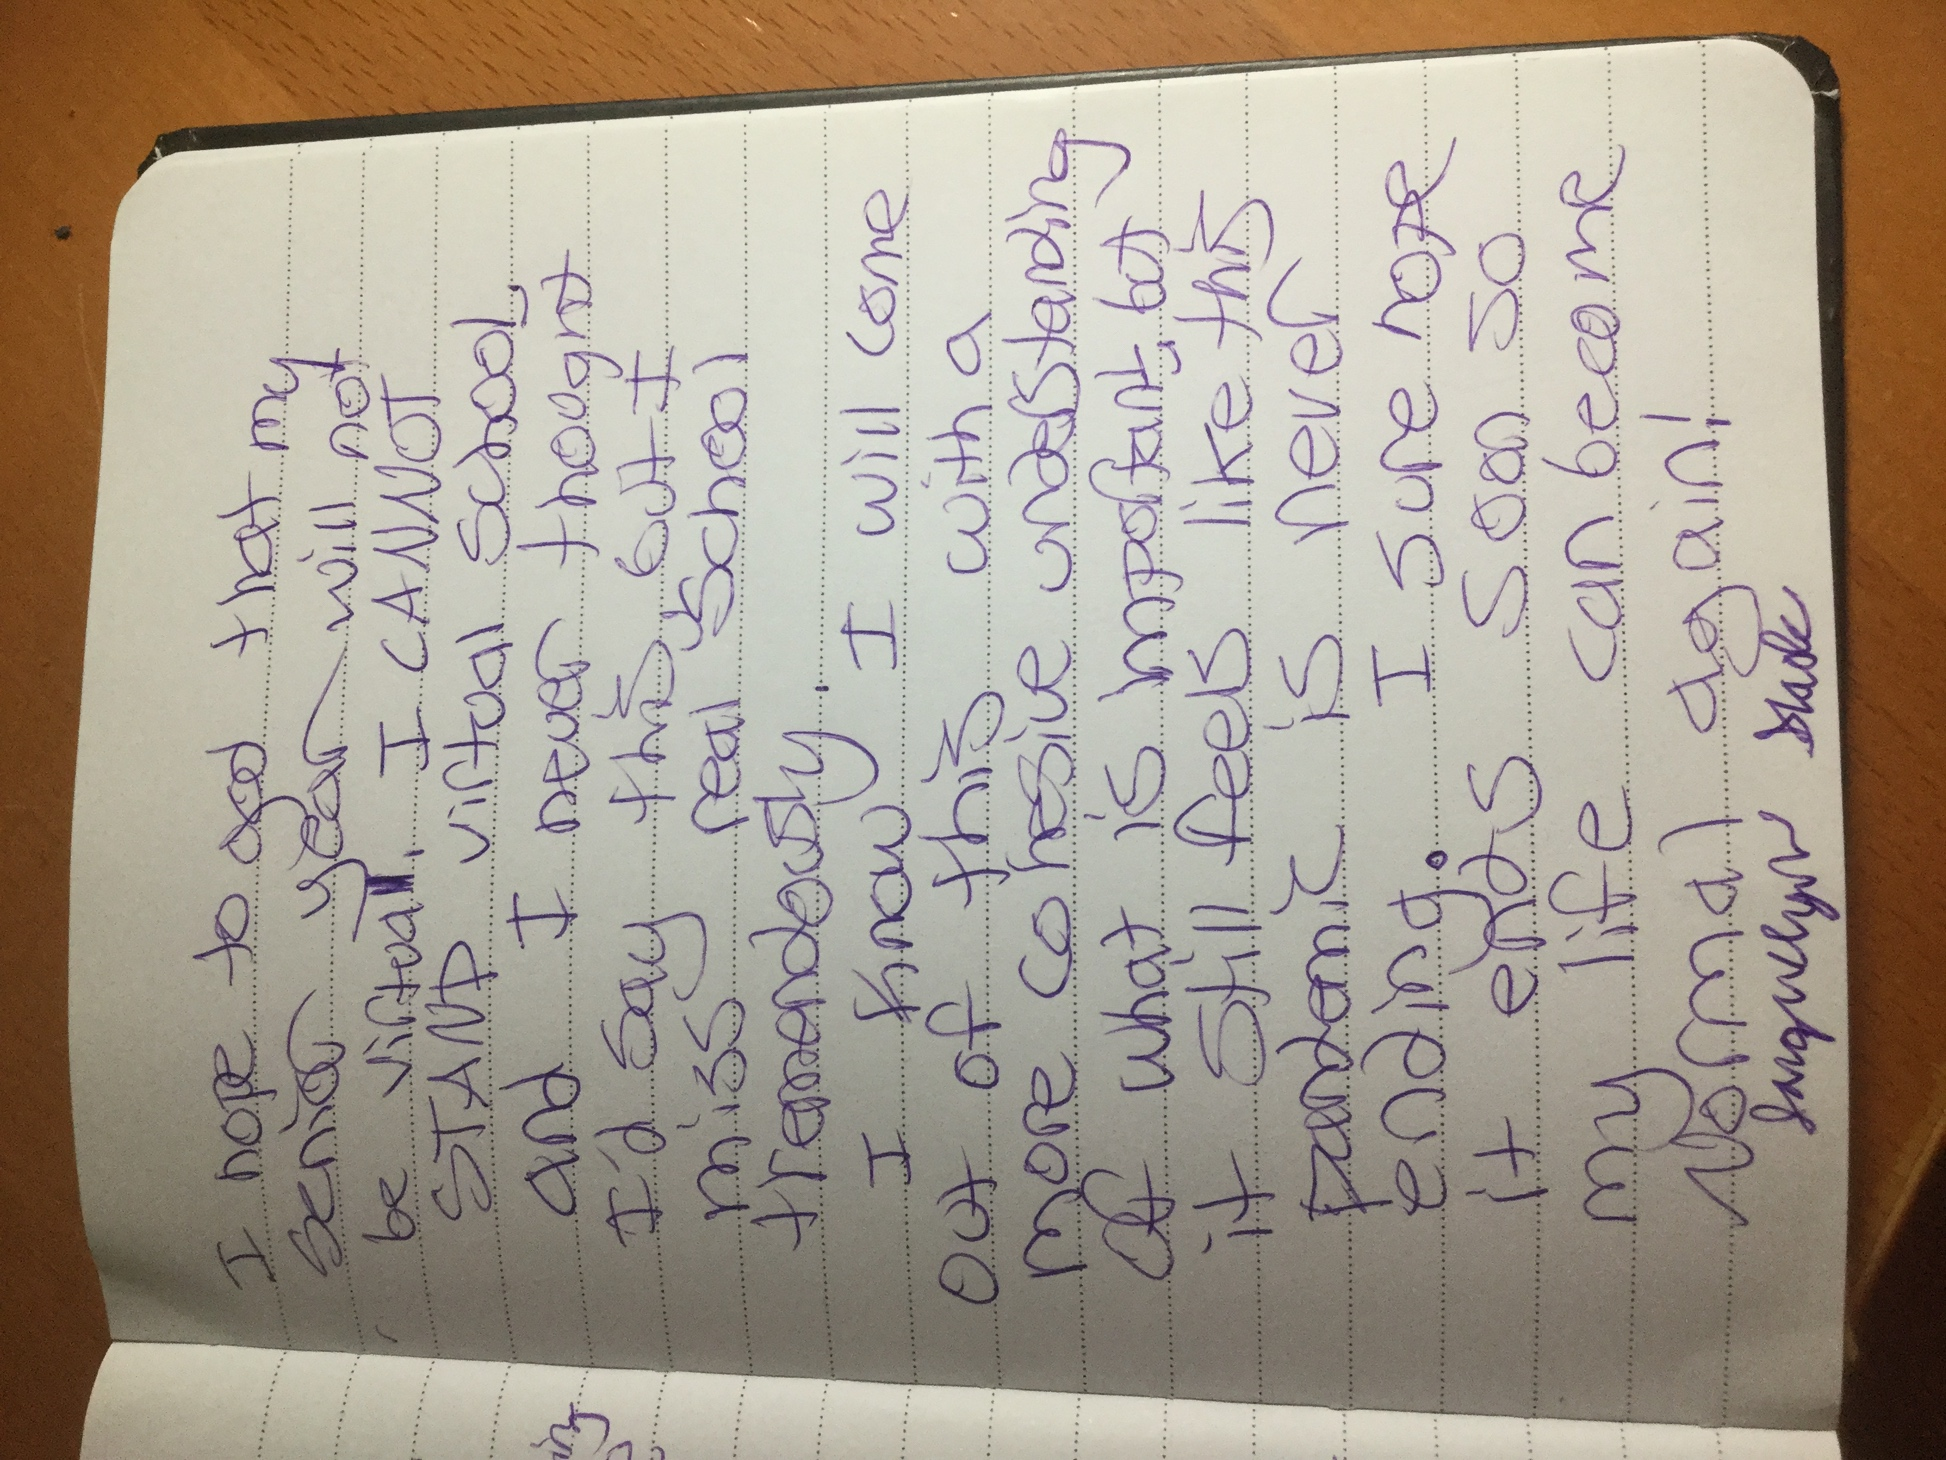 I hope to god that my
senior year will not
be virtual. I CANNOT
STAND virtual school,
and I never thought
I'd say this but I
miss real school
tremendously.
I know I will come
out of this with a
more cohesive understanding
of what is important, but
it still feels like this
pandemic is never
ending. I sure hope
it ends soon so
my life can become
normal again!
Jacquelyn Slade
ing